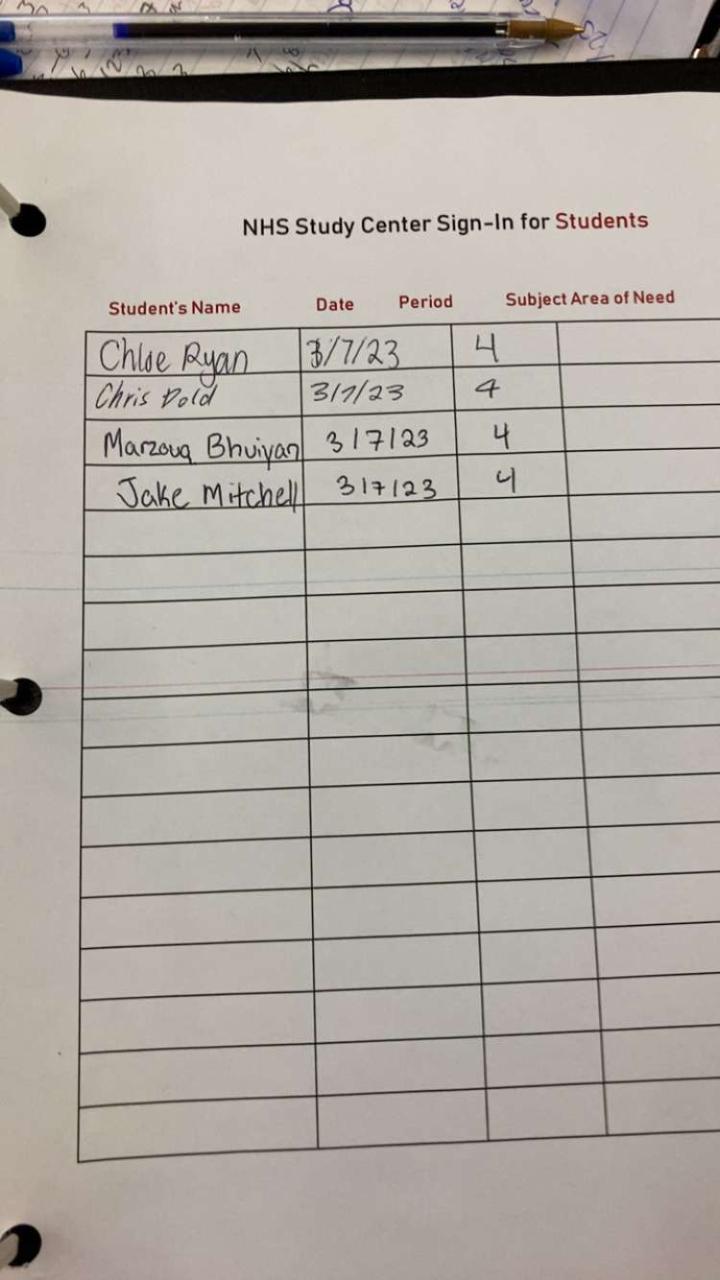 NHS Study Center Sign-In for Students
Student's Name Date Period Subject Area of Need
Chloe Ryan 3/7/23 4
Chris Dold 3/7/23 4
Marzouq Bhuiyan 3/7/23 4
Jake Mitchell 3/7/23 4